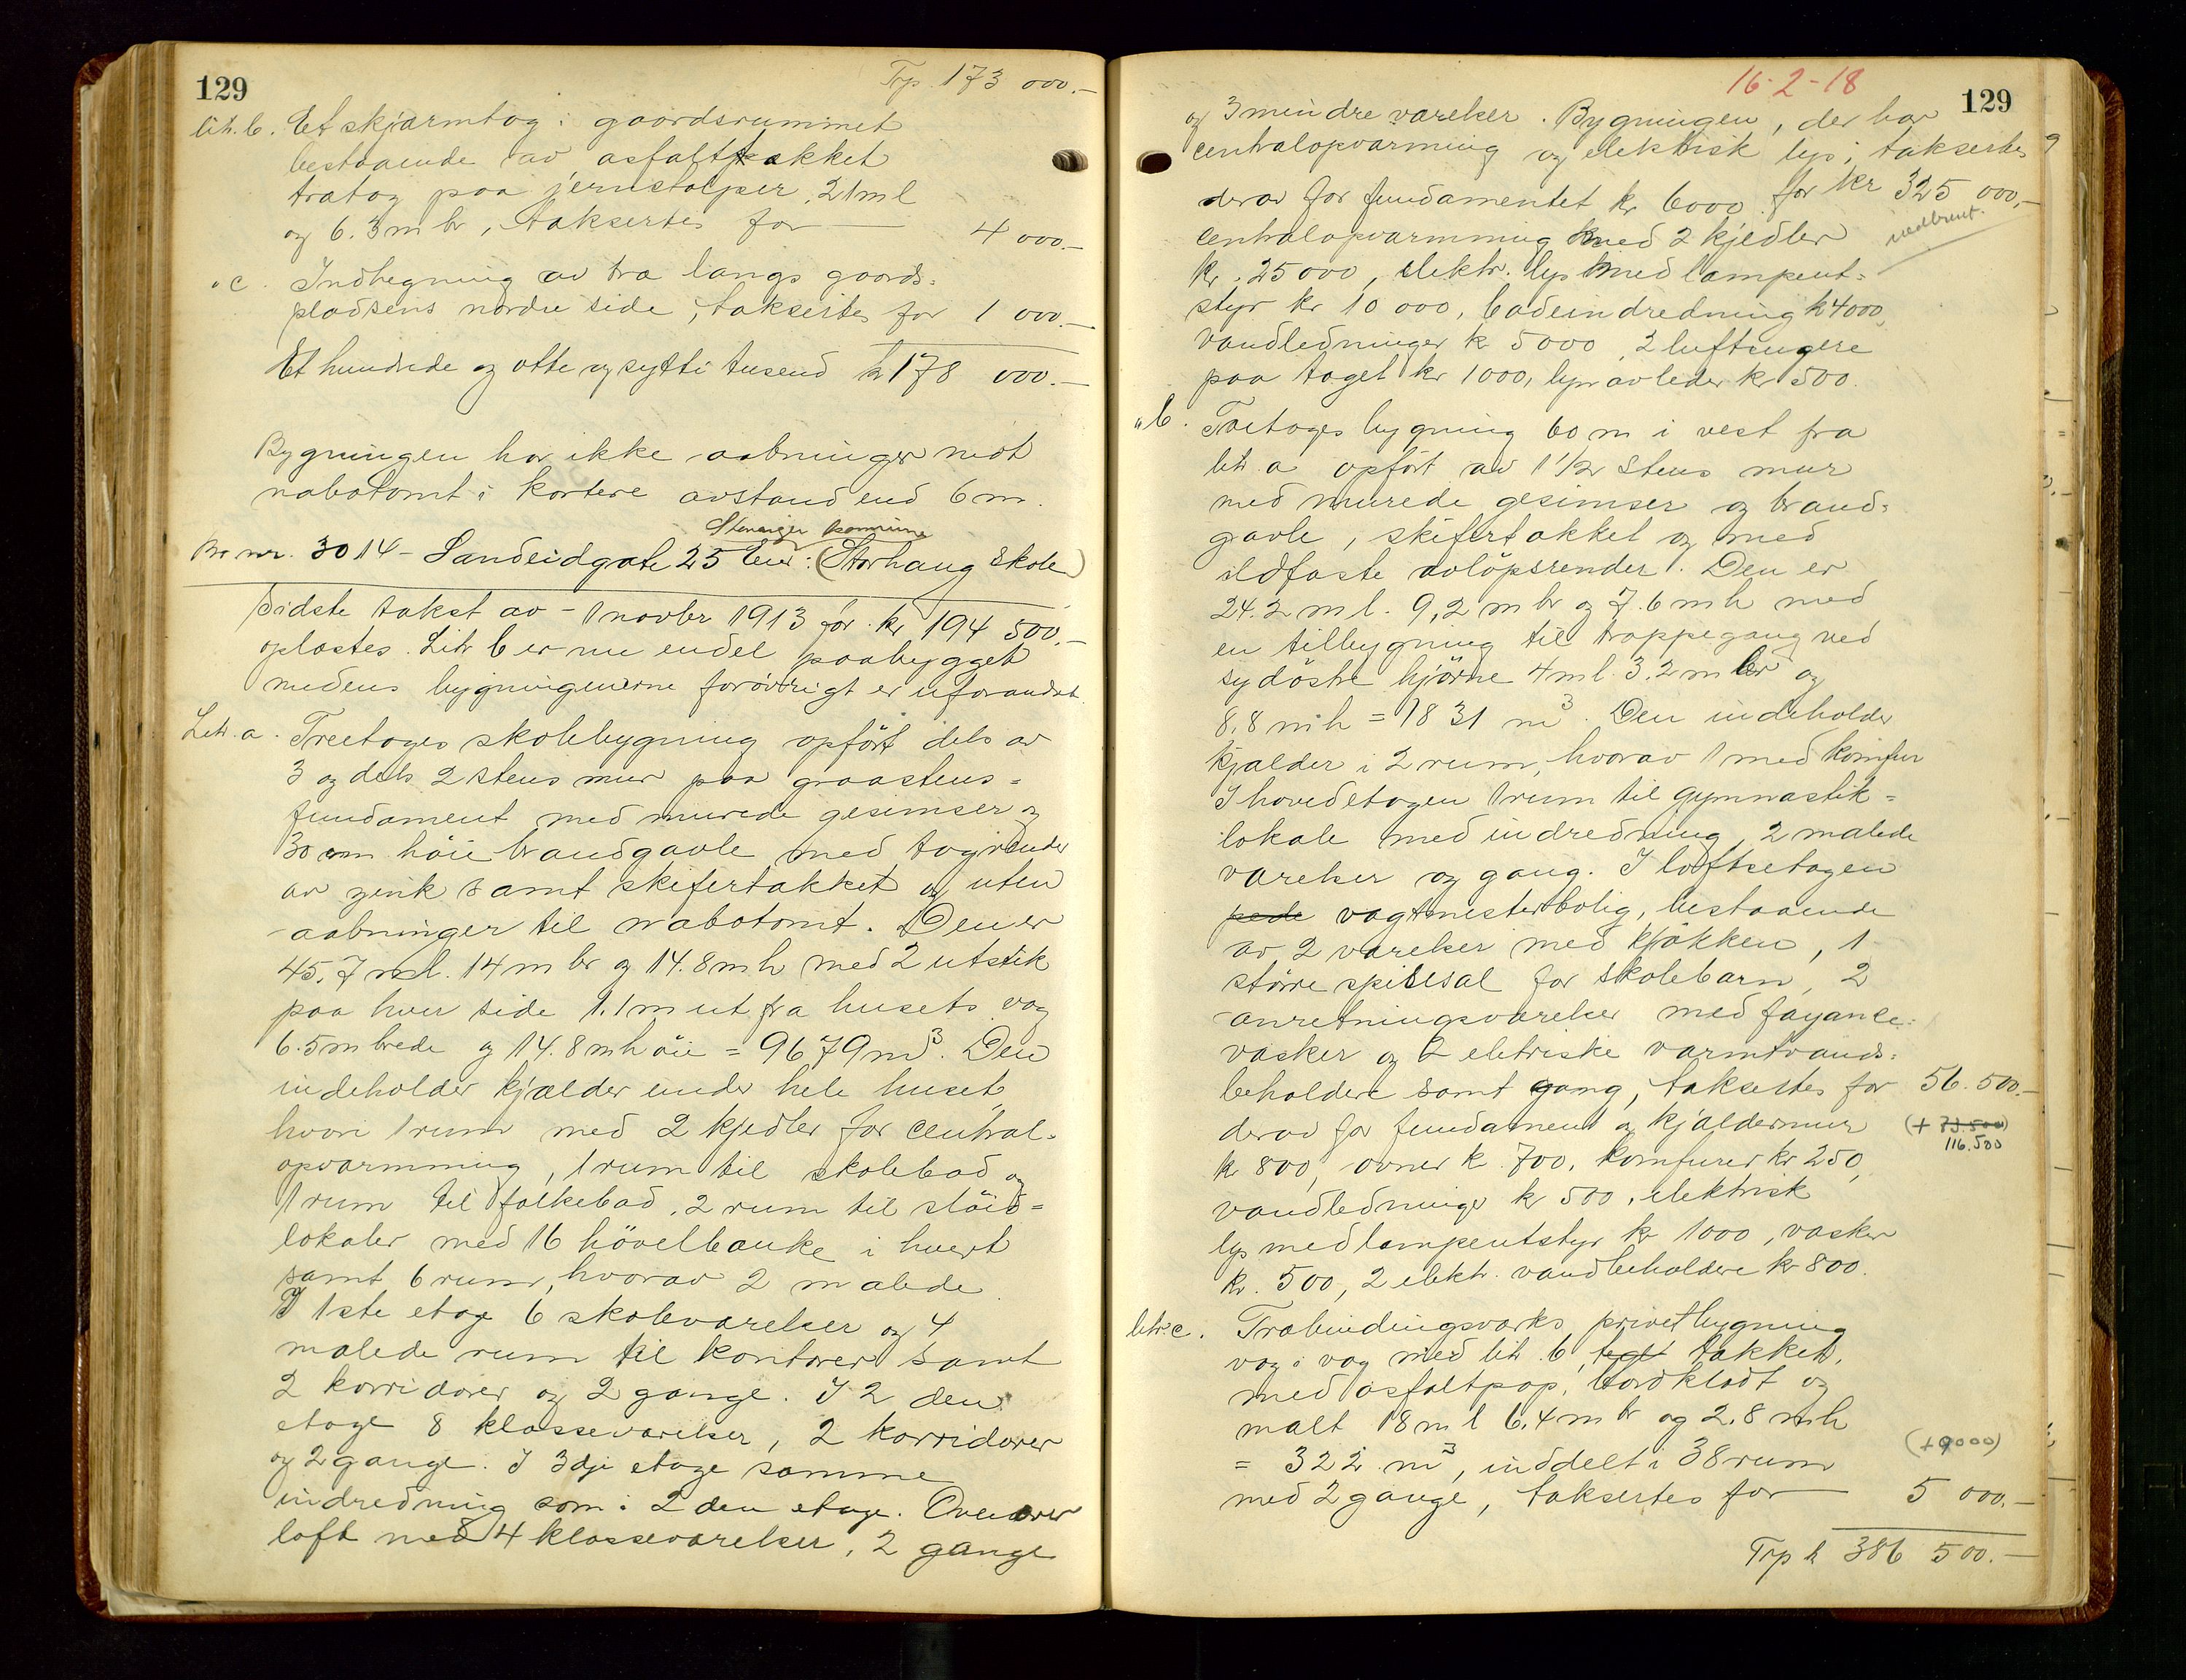 129
Trp. 173 000.-
litr. b. Et skjærmtag i gaardsrummet
bestaaende av asfalttækket
trætag paa jernstolper, 21 m l
og 6.3 m br, taksertes for 4 000.-
" c. Indhegning av træ langs gaards=
pladsens nordre side, taksertes for 1 000.-
Et hundrede og otte og sytti tusend kr 178 000.-
Bygningen har ikke aabninger mot
nabotomt i kortere avstand end 6 m.
Stavanger kommune
Br nr. 3014 - Sandeidgate 25 Eier: (Storhaug skole)
Sidste takst av - 1 novbr 1913 for kr 194 500.-
oplæstes. Litr b er nu endel paabygget
medens bygningerne forövrigt er uforandret.
Litr. a. Treetages skolebygning opfört dels av
3 og dels 2 stens mur paa graastens=
fundament med murede gesimser og
30 cm höie brandgavle med tagrender
av zink samt skifertækket og uten
aabninger til nabotomt. Den er
45.7 m l. 14 m br og 14.8 m h med 2 utstik
paa hver side 1.1 m ut fra husets væg
6.5 m brede og 14.8 m höie = 9679 m3. Den
indeholder kjælder under hele huset
hvori 1 rum med 2 kjedler for central=
opvarmning, 1 rum til skolebad og
1 rum til folkebad, 2 rum til slöid=
lokaler med 16 hövelbænke i hvert
samt 6 rum, hvorav 2 malede.
I 1ste etage 6 skoleværelser og 4
malede rum til kontorer samt
2 korridorer og 2 gange. I 2 den
etage 8 klasseværelser, 2 korridorer
og 2 gange. I 3dje etage samme
indredning som i 2 den etage. Ovenover
loft med 4 klasseværelser, 2 gange
16-2-18
129
og 3 mindre værelser. Bygningen, der har
centralopvarming og elektrisk lys, taksertes
for kr 325 000,-
derav for fundamentet kr 6000
nedbrent.
centralopvarmning med 2 kjedler
kr. 25000, elektr. lys med lampeut=
styr kr 10 000, badeindredning kr 4000,
vandledninger kr 5000, 2 luftsugere
paa taget kr 1000, lynavleder kr 500.
" b. Toetages bygning 60 m i vest fra
litr a opfört av 1 1/2 stens mur
med murede gesimser og brand=
gavle, skifertækket og med
ildfaste avlöpsrender. Den er
24.2 m l. 9,2 m br og 7.6 m h med
en tilbygning til trappegang ved
sydöstre hjörne 4 m l. 3.2 m br og
8.8 m h = 1831 m3. Den indeholder
kjælder i 2 rum, hvorav 1 med komfur
I hovedetagen 1 rum til gymnastik=
lokale med indredning, 2 malede
værelser og gang. I loftsetagen
vagtmesterbolig, bestaaende
av 2 værelser med kjökken, 1
större spisesal for skolebarn, 2
anretningsværelser med fayance=
vasker og 2 eletriske varmtvands=
beholdere samt gang, taksertes for 56.500.-
derav for fundament og kjældermur (+ 73.500)
116.500
kr 800, ovner kr 700, komfurer kr 250,
vandledninger kr 500, elektrisk
lys med lampeutstyr kr 1000, vasker
kr. 500, 2 elektr. vandbeholdere kr 800.
litr. c. Træbindingsværks privetbygning
væg i væg med litr b, taget tækket
med asfaltpap, bordklædt og
malt 18 m l 6.4 m br og 2.8 m h
(+9000)
= 322 m3, inddelt i 38 rum
med 2 gange, taksertes for 5 000.-
Trp kr 386 500.-